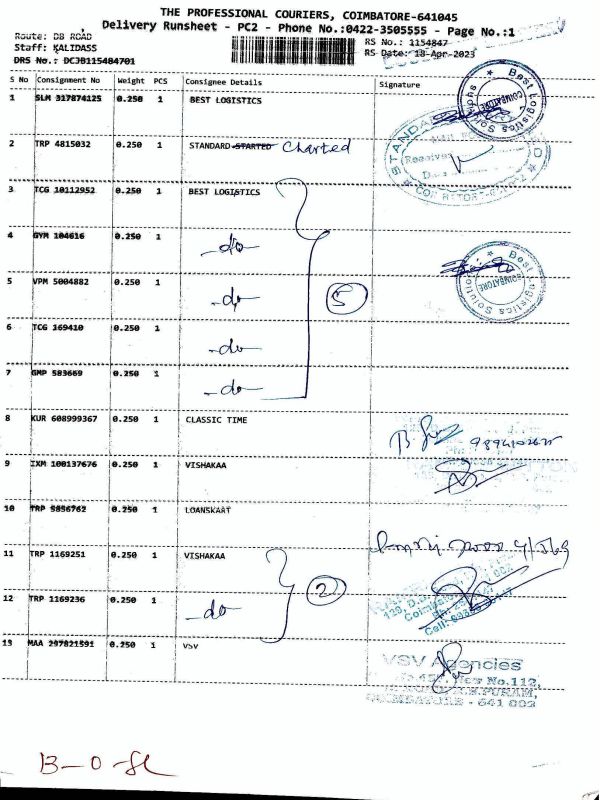 THE PROFESSIONAL COURIERS, COIMBATORE-641045
Delivery Runsheet - PC2 - Phone No.:0422-3505555 - Page No.:1
Route: DB ROAD
RS No.: 1154847
Staff: KALIDASS
RS Date: 18-Apr-2023
DRS No.: DCJB115484701
S No Consignment No Weight PCS Consignee Details Signature
1 SLM 317874125 0.250 1 BEST LOGISTICS
Best Logistics Solutions
COIMBATORE
2 TRP 4815032 0.250 1 STANDARD STARTED Charted
3 TCG 10112952 0.250 1 BEST LOGISTICS
4 GYM 104616 0.250 1 -do-
Best Logistics Solutions
COIMBATORE
5 VPM 5004882 0.250 1 -do-
5
6 TCG 169410 0.250 1 -do-
7 GMP 583669 0.250 1 -do-
8 KUR 608999367 0.250 1 CLASSIC TIME
9 IXM 100137676 0.250 1 VISHAKAA
10 TRP 5856762 0.250 1 LOANSKART
11 TRP 1169251 0.250 1 VISHAKAA
2
12 TRP 1169236 0.250 1 -do-
13 MAA 297821591 0.250 1 VSV
VSV Agencies
New No.112,
COIMBATORE - 641 002